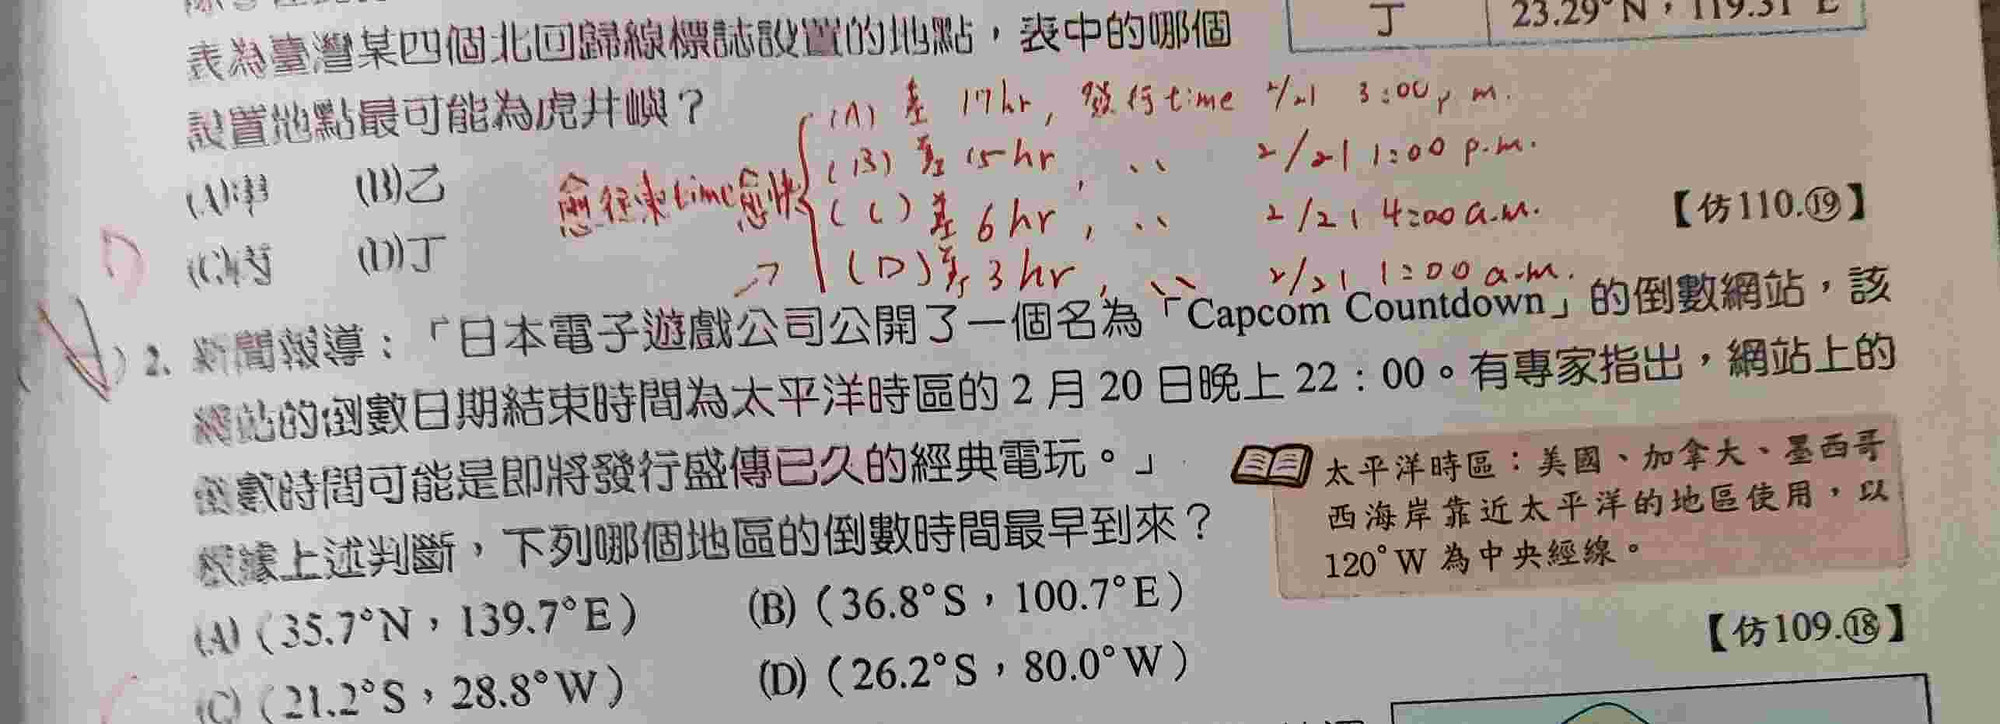 表為臺灣某四個北回歸線標誌設置的地點，表中的哪個
丁 23.29°N，119.31°E
設置地點最可能為虎井嶼？
(A)甲 (B)乙
(C)丙 (D)丁
【仿110.⑲】
愈往東time愈快
(A) 差 17hr, 發行time 2/21 3:00 p.m.
(B) 差 15hr, 〃 2/21 1:00 p.m.
(C) 差 6hr, 〃 2/21 4:00 a.m.
→ (D) 差 3hr, 〃 2/21 1:00 a.m.
(A) 2. 新聞報導：「日本電子遊戲公司公開了一個名為「Capcom Countdown」的倒數網站，該
網站的倒數日期結束時間為太平洋時區的 2 月 20 日晚上 22：00。有專家指出，網站上的
倒數時間可能是即將發行盛傳已久的經典電玩。」
根據上述判斷，下列哪個地區的倒數時間最早到來？
太平洋時區：美國、加拿大、墨西哥
西海岸靠近太平洋的地區使用，以
120°W 為中央經線。
(A)（35.7°N，139.7°E） (B)（36.8°S，100.7°E）
(C)（21.2°S，28.8°W） (D)（26.2°S，80.0°W）
【仿109.⑱】